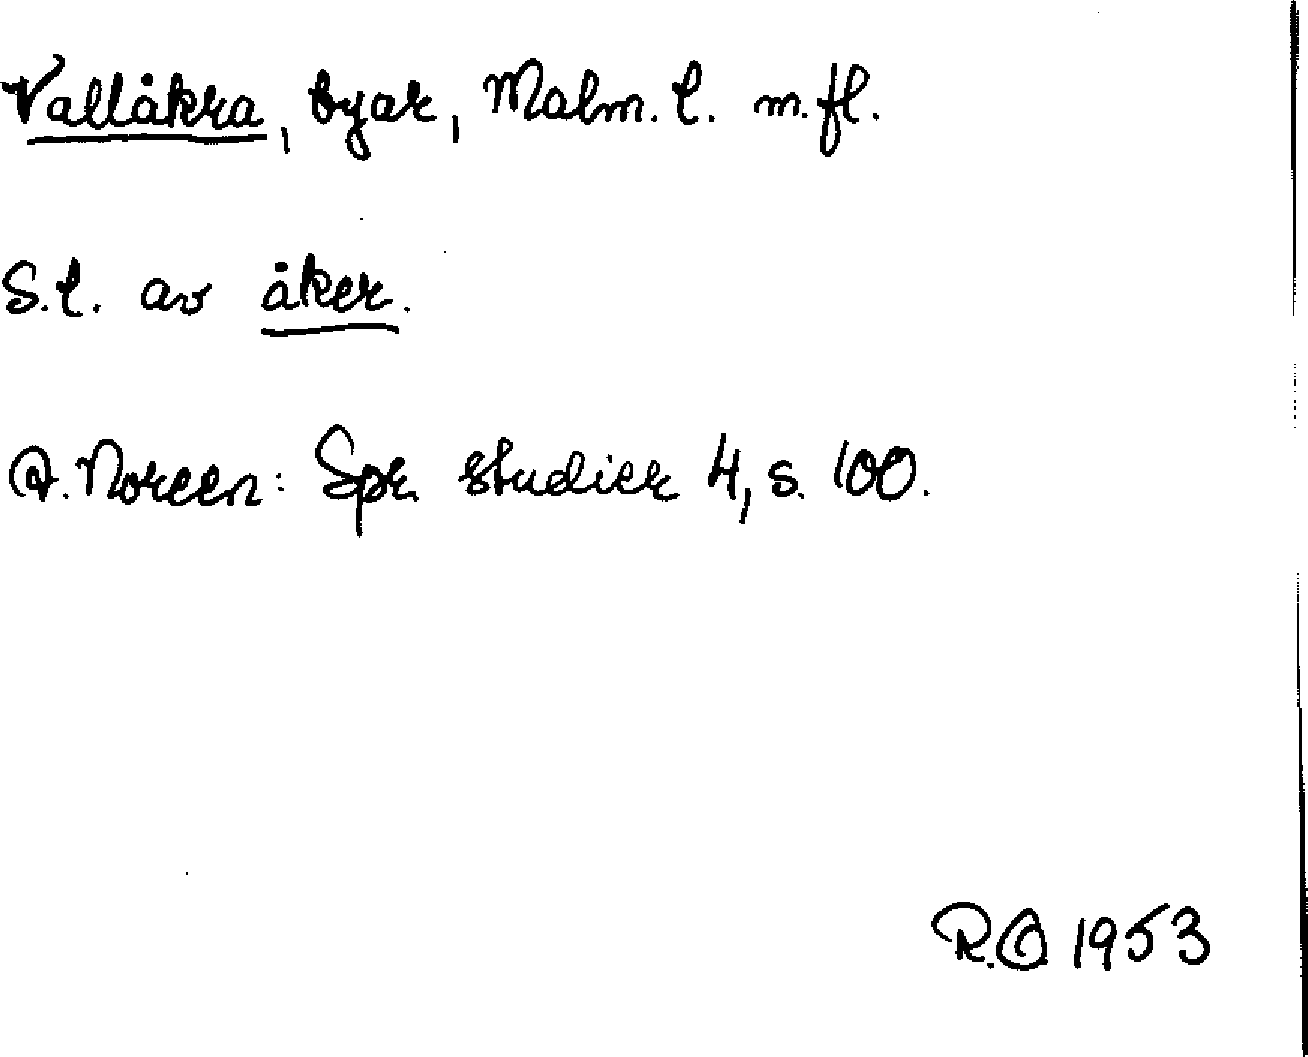 Vallåkra, byar, Malm. l. m. fl.
S.l. av åker.
A. Noreen: Spr. studier 4, s. 100.
R.O 1953